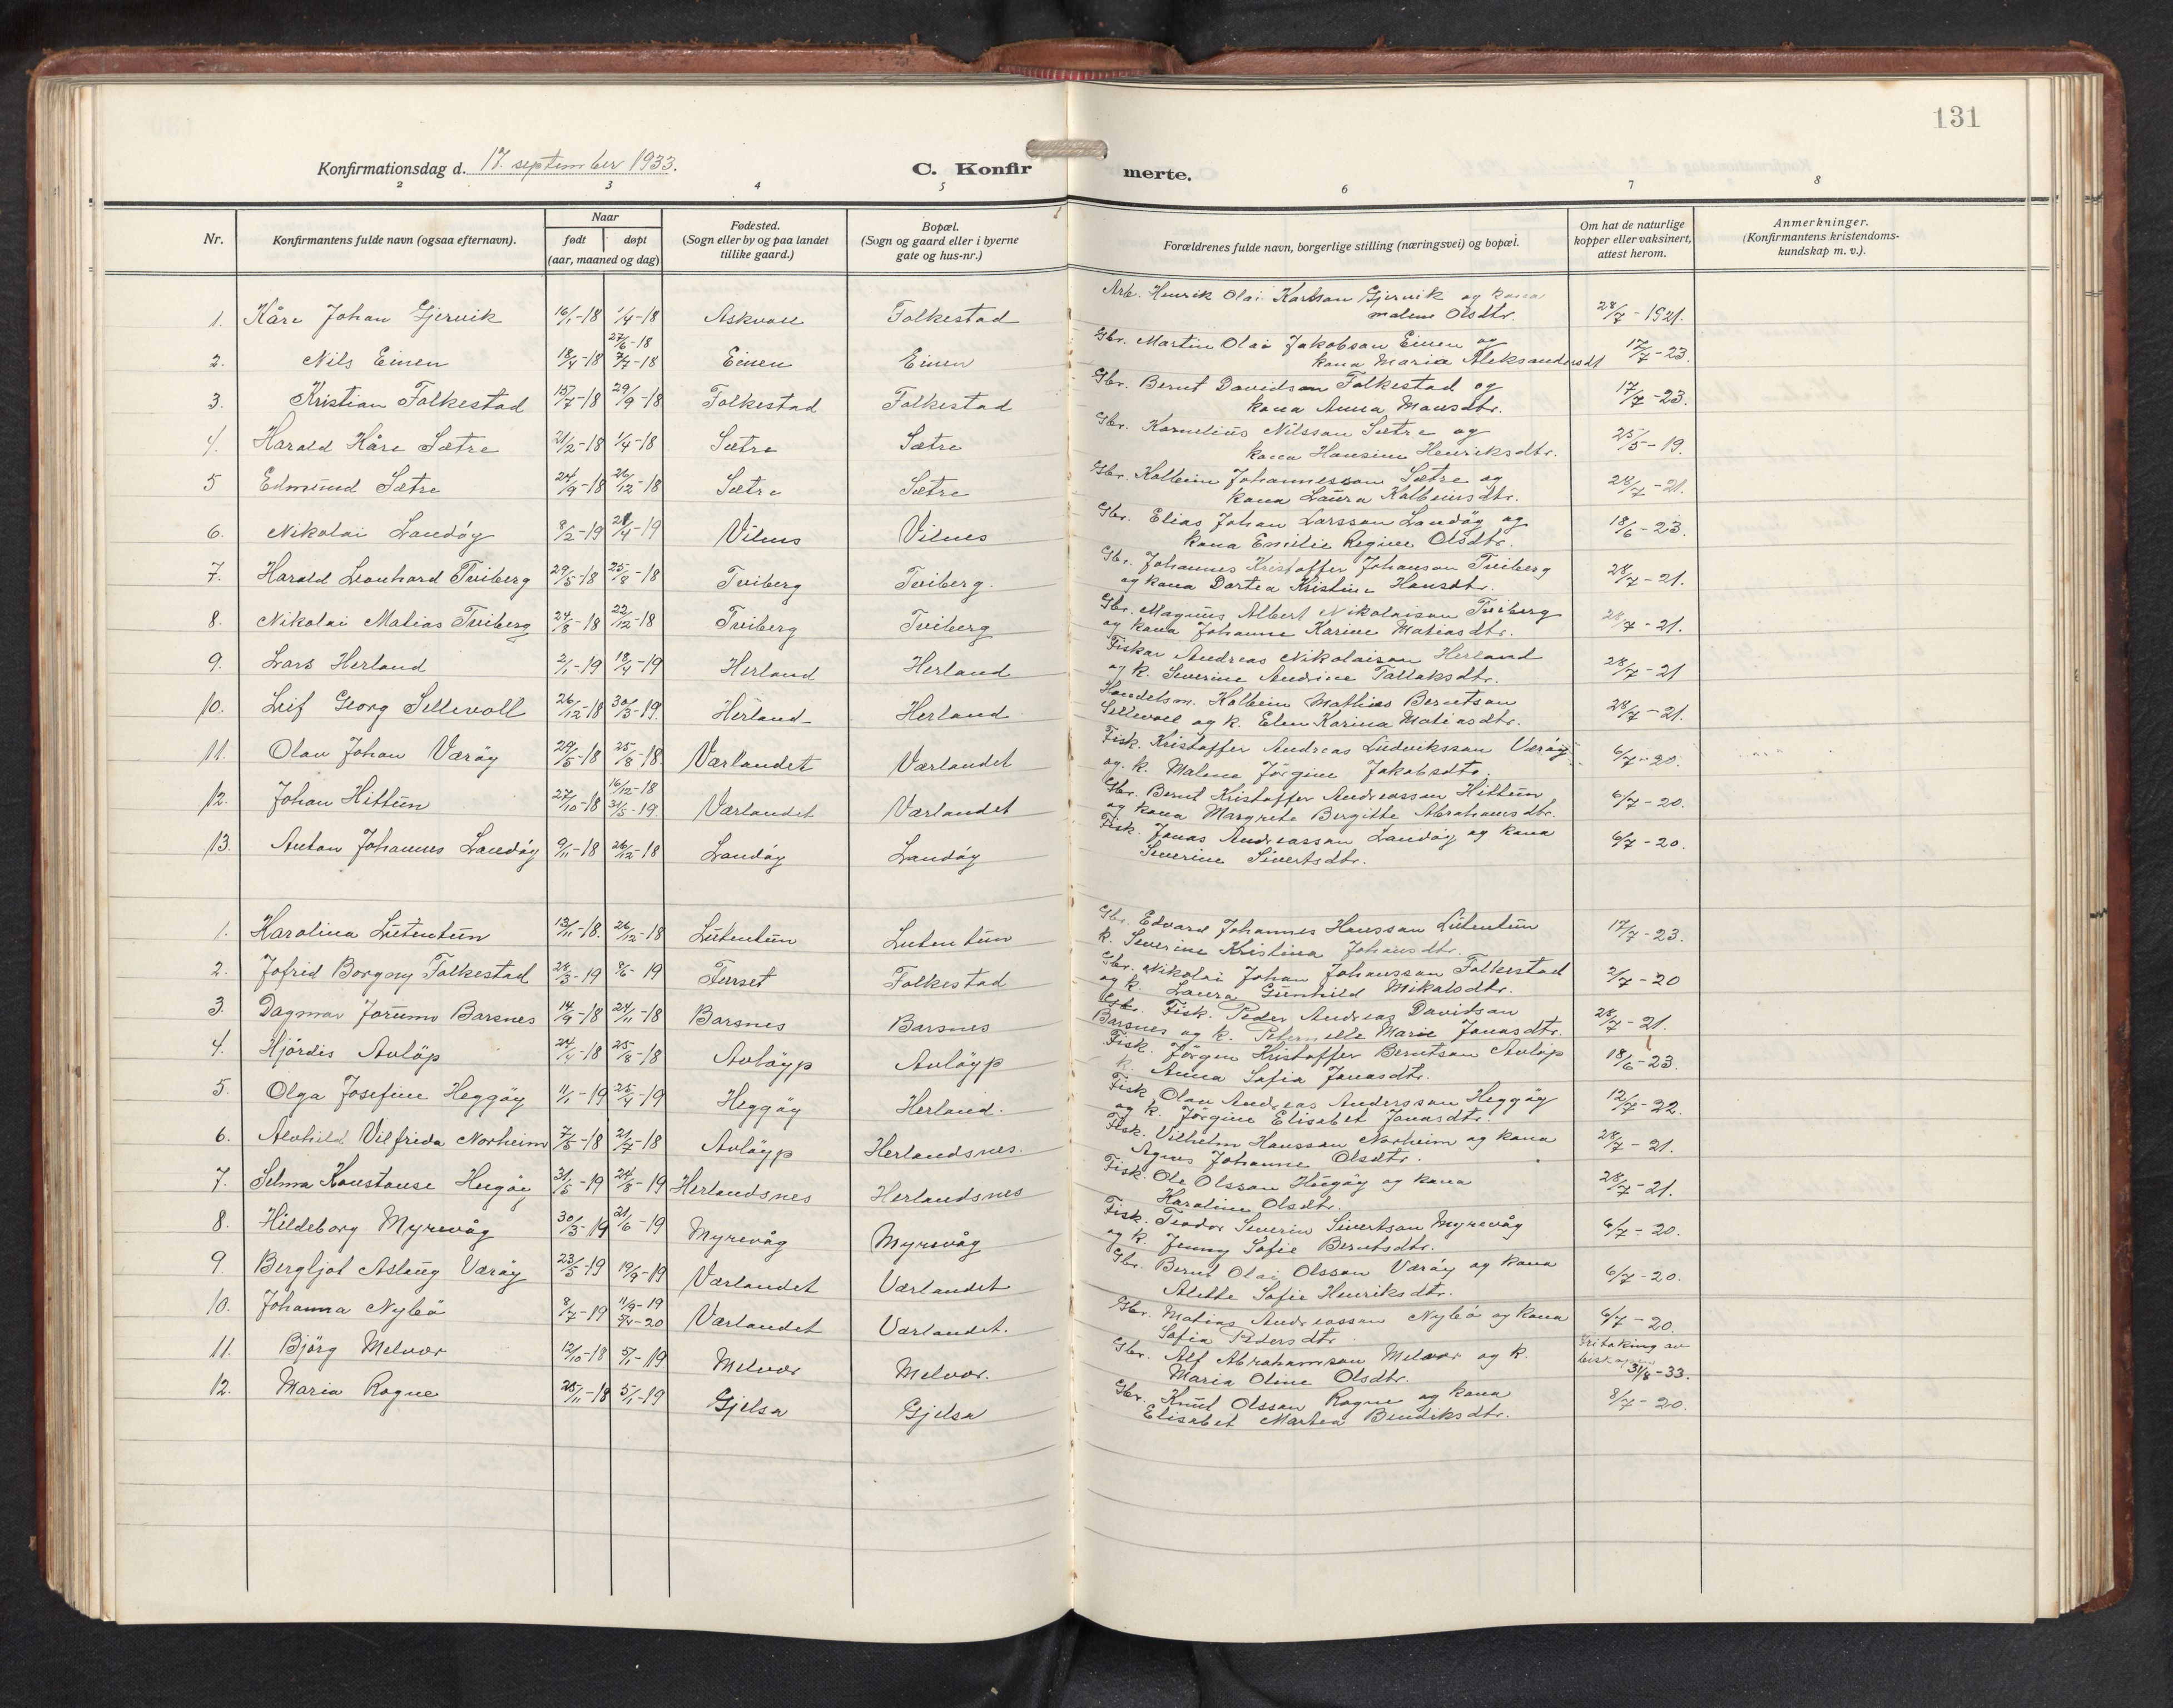 131
Konfirmationsdag d. 17. september 1933.
C. Konfirmerte.
2 3 4 5 6 7 8
Nr. | Konfirmantens fulde navn (ogsaa efternavn). | Naar født døpt (aar, maaned og dag) | Fødested. (Sogn eller by og paa landet tillike gaard.) | Bopæl. (Sogn og gaard eller i byerne gate og hus-nr.) | Forældrenes fulde navn, borgerlige stilling (næringsvei) og bopæl. | Om hat de naturlige kopper eller vaksinert, attest herom. | Anmerkninger. (Konfirmantens kristendoms-kundskap m. v.).
1. Kåre Johan Gjervik 16/1-18 1/4-18 Askvoll Folkestad Arb. Henrik Olai Karlson Gjervik og kona Malene Olsdtr. 28/7-1921.
2. Nils Einen 18/4-18 27/6-18 7/7-18 Einen Einen Gbr. Martin Olai Jakobson Einen og kona Maria Aleksandersdt 17/7-23.
3. Kristian Folkestad 15/7-18 29/9-18 Folkestad Folkestad Gbr. Bernt Davidson Folkestad og kona Anna Monsdtr. 17/7-23.
4. Harald Kåre Sætre 21/2-18 1/4-18 Sætre Sætre Gbr. Kornelius Nilsson Sætre og kona Hansine Henriksdtr. 25/5-19.
5 Edmund Sætre 24/9-18 26/12-18 Sætre Sætre Gbr. Kolbein Johannesson Sætre og kona Laura Kolbeinsdtr. 28/7-21.
6. Nikolai Landöy 8/2-19 21/4-19 Vilnes Vilnes Gbr. Elias Johan Larsson Landöy og kona Emilie Regine Olsdtr. 18/6-23.
7. Harald Leonhard Tviberg 29/5-18 25/8-18 Tviberg Tviberg. Gbr. Johannes Kristoffer Johanson Tviberg og kona Dortea Kristine Hansdtr. 28/7-21.
8. Nikolai Matias Tviberg 24/8-18 22/12-18 Tviberg Tviberg Gbr. Magnus Albert Nikolaison Tviberg og kona Johanne Karine Matiasdtr. 28/7-21.
9. Lars Herland 2/1-19 18/4-19 Herland Herland Fiskar Andreas Nikolaison Herland og k. Severine Andrine Tollaksdtr. 28/7-21
10. Leif Georg Sellevoll 26/12-18 30/3-19. Herland Herland Handelsm. Kolbein Mathias Berntson Sellevoll og k. Elen Karina Matiasdtr. 28/7-21.
11. Olav Johan Væröy 29/5-18 25/8-18. Værlandet Værlandet Fisk. Kristoffer Andreas Ludviksson Væröy og k. Malene Jörgine Jakobsdtr. 6/7-20.
12. Johan Hittun 27/10-18 16/12-18 31/5-19. Værlandet Værlandet Gbr. Bernt Kristoffer Andreasson Hittun og kona Margrete Bergitte Abrahamsdtr. 6/7-20.
13. Anton Johannes Landöy 9/11-18 26/12-18 Landöy Landöy Fisk. Jonas Andreasson Landöy og kona Severine Sivertsdtr. 6/7-20.
1. Karolina Lutentun 13/11-18. 26/12-18 Lutentun Lutentun Gbr. Edvard Johannes Hansson Lutentun k. Severine Kristina Johansdtr. 17/7-23.
2. Jofrid Borgny Folkestad 28/3-19 8/6-19 Furset Folkestad Gbr. Nikolai Johan Johansson Folkestad og k. Laura Gunhild Mikalsdtr. 2/7-20
3. Dagmar Jorunn Barsnes 14/9-18 24/11-18 Barsnes Barsnes Gbr. Fisk. Peder Andreas Davidson Barsnes og k. Peternelle Marie Jonasdtr. 28/7-21.
4. Hjördis Avlöp 24/4-18 25/8-18 Avlöyp Avlöyp Fisk. Jörgen Kristoffer Berntson Avlöp k. Anna Sofia Jonasdtr. 18/6-23.
5. Olga Josefine Heggöy 11/1-19 25/4-19 Heggöy Herland. Fisk Olav Andreas Andersson Heggöy og k. Jörgine Elisabet Jonasdtr. 12/7-22.
6. Alvhild Vilfrida Norheim 7/5-18 21/7-18 Avlöyp Herlandsnes. Fisk. Vilhelm Hansson Norheim og kona Agnes Johanne Olsdtr. 28/7-21.
7. Selma Konstanse Hegöy 31/5-19 24/8-19 Herlandsnes Herlandsnes Fisk. Ole Olsson Hegöy og kona Karoline Olsdtr. 28/7-21.
8. Hildeborg Myrevåg 30/3-19 21/6-19 Myrevåg Myrevåg Fisk. Teodor Severin Sivertson Myrevåg og k. Jenny Sofie Berntsdtr. 6/7-20.
9 Bergljot Aslaug Væröy 23/5-19 19/9-19 Værlandet Værlandet Gbr. Bernt Olai Olsson Væröy og kona Alette Sofie Henriksdtr. 6/7-20.
10. Johanna Nyleö 8/7-19 11/9-19 5/4-20 Værlandet Værlandet. Gbr. Matias Andreasson Nyleö og kona Sofia Pedersdtr. 6/7-20.
11. Björg Melvær 12/10-18 5/1-19 Melvær Melvær. Gbr. Alf Abrahamson Melvær og k. Maria Oline Olsdtr. Fritaking av biskopen 31/8-33.
12. Maria Rogne 25/11-18 5/1-19 Gjelsa Gjelsa Gbr. Knut Olsson Rogne og kona Elisabet Martea Bendiksdtr. 8/7-20.